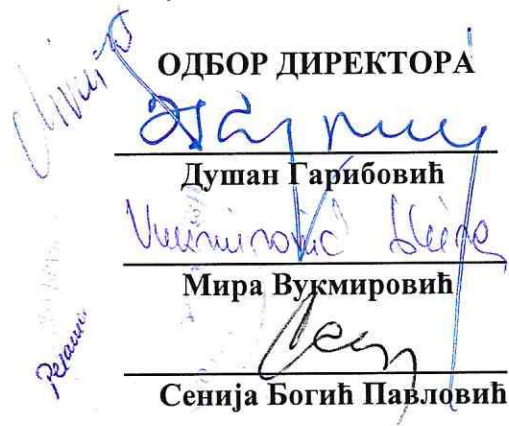 ОДБОР ДИРЕКТОРА
Душан Гарибовић
Vukmirović Mira
Мира Вукмировић
Сенија Богић Павловић